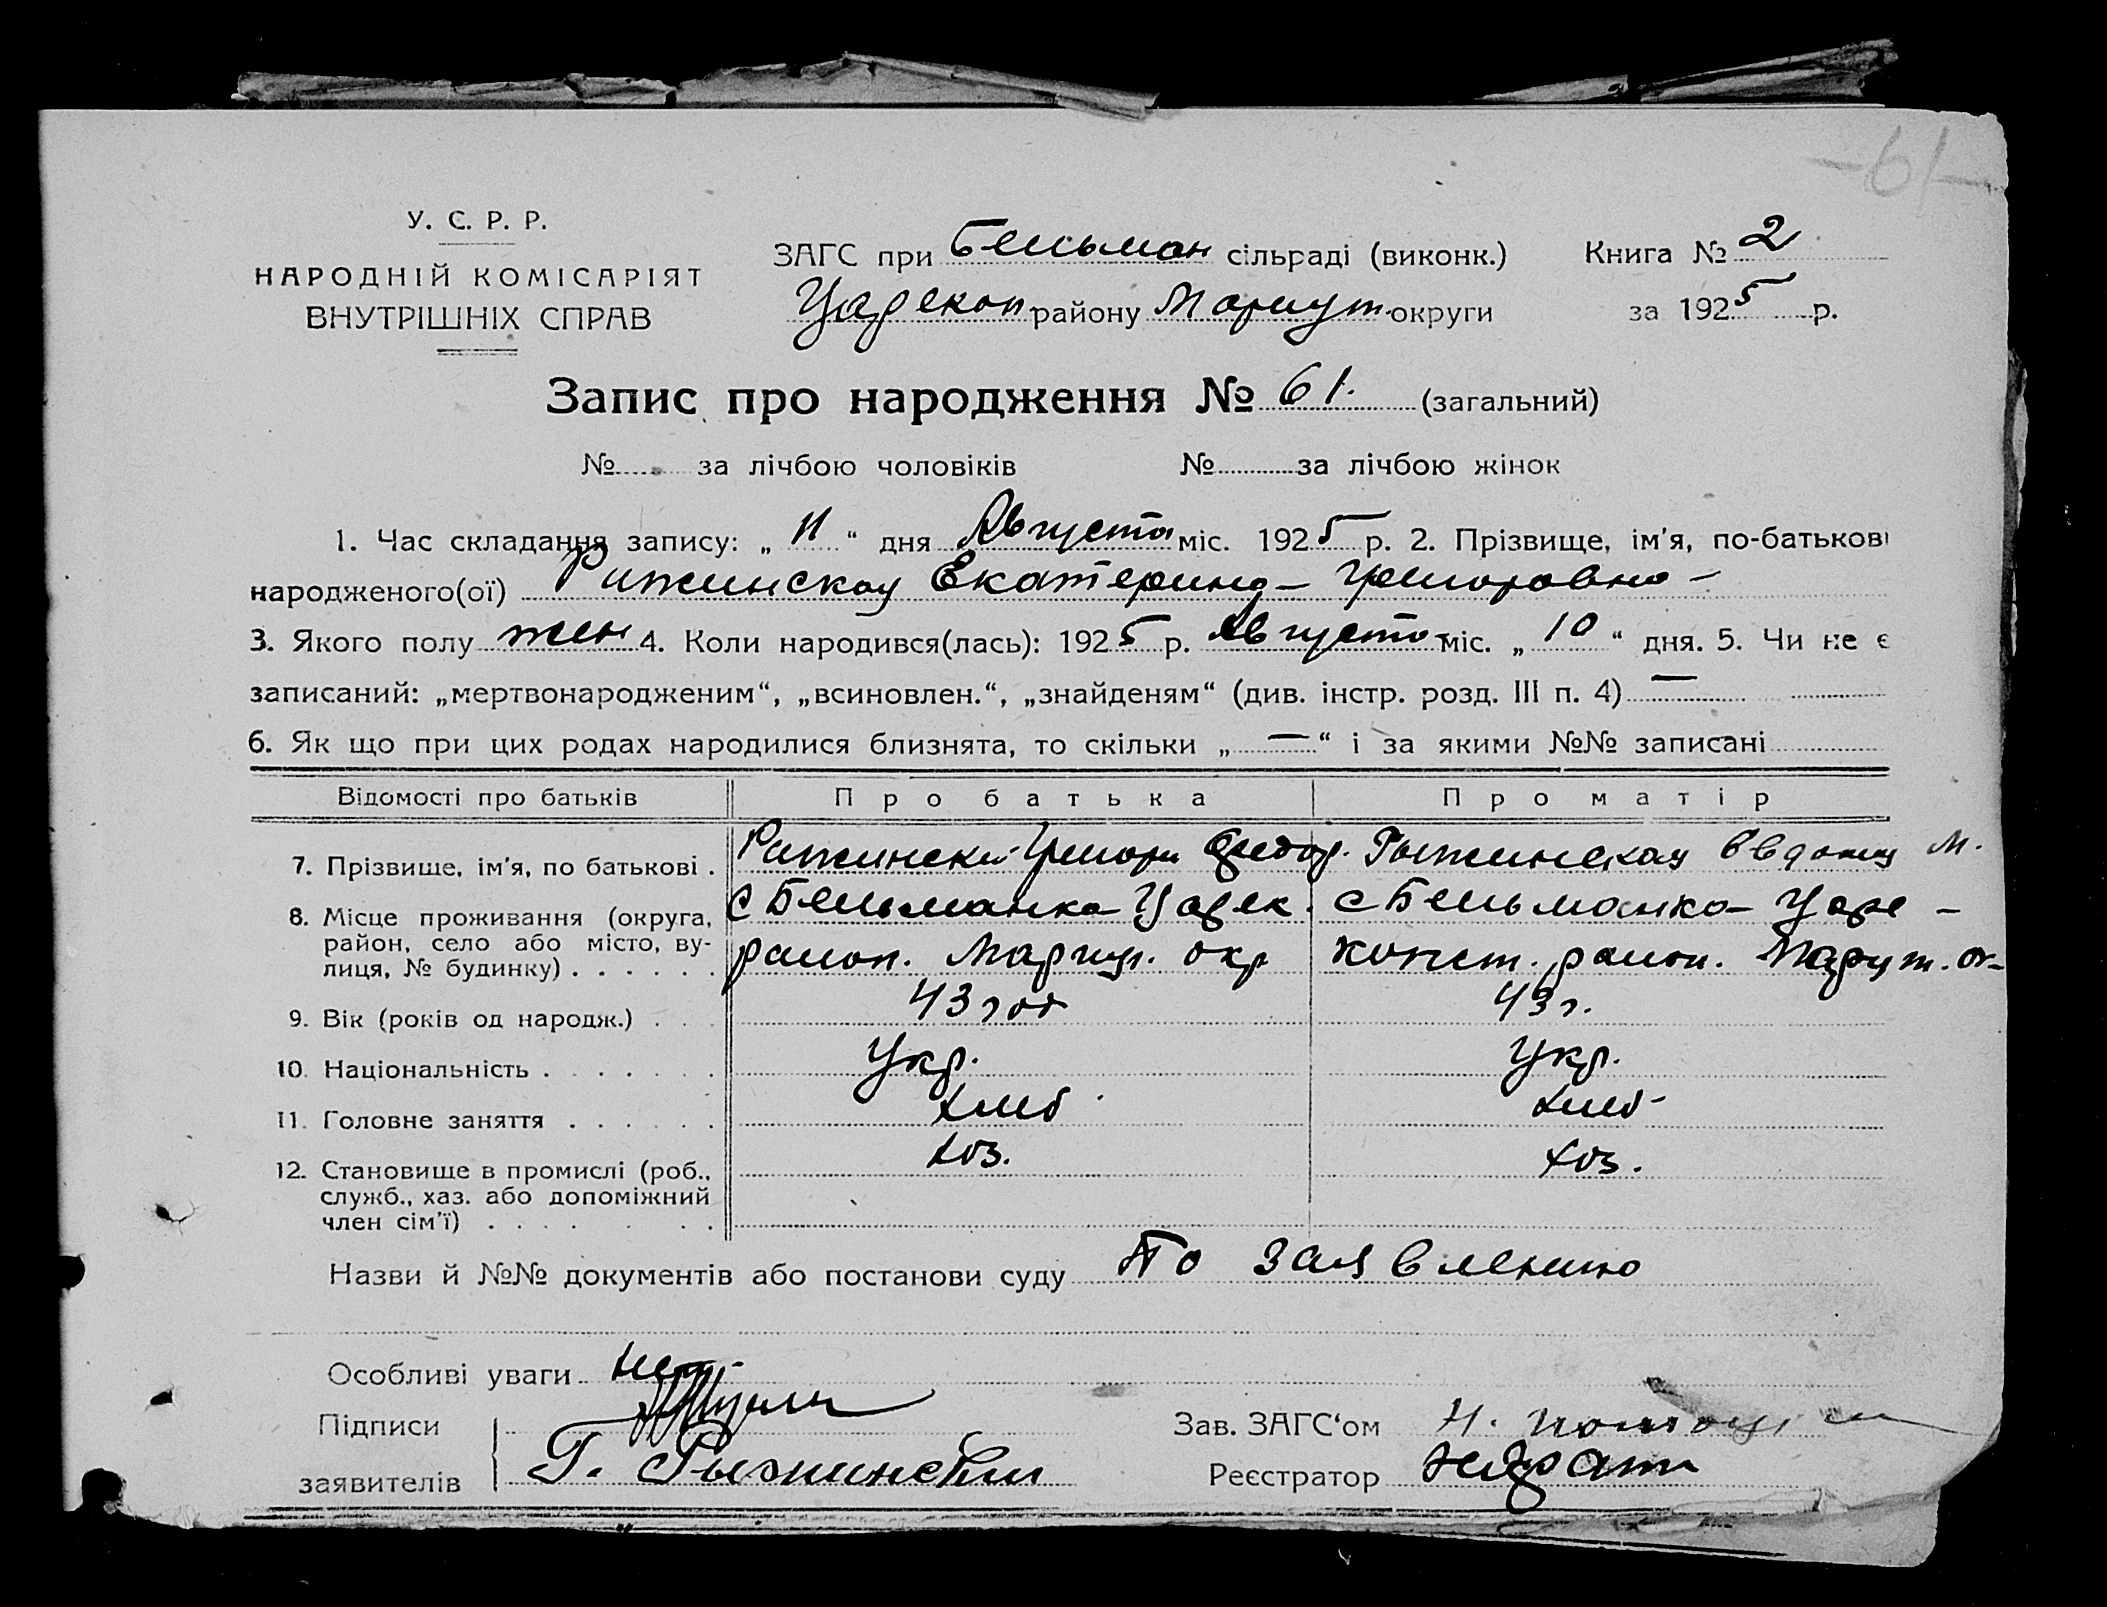 -61-
У. С. Р. Р.
НАРОДНІЙ КОМІСАРІЯТ
ВНУТРІШНІХ СПРАВ
ЗАГС при Бельман сільраді (виконк.)
Царекон району Мариуп. округи
Книга № 2
за 1925 р.
Запис про народження № 61. (загальний)
№ за лічбою чоловіків № за лічбою жінок
1. Час складання запису: „ 11 “ дня Августа міс. 1925 р. 2. Прізвище, ім'я, по-батькові
народженого(ої) Рижинская Екатерина – Григоровна –
3. Якого полу жен 4. Коли народився(лась): 1925 р. Августа міс. „ 10 “ дня. 5. Чи не є
записаний: „мертвонародженим“, „всиновлен.“, „знайденям“ (див. інстр. розд. III п. 4) —
6. Як що при цих родах народилися близнята, то скільки „ — “ і за якими №№ записані
Відомості про батьків Про батька Про матір
7. Прізвище, ім'я, по батькові . Рижински Григори Федор. Рыжинская Евдокия М.
8. Місце проживання (округа, район, село або місто, вулиця, № будинку) . . . . . .
с Бельманка Царек. район. Мариуп. окр
с Бельманка Царе – конст. район. Мариуп. ок–
9. Вік (років од народж.) . . . 43 год 43 г.
10. Національність . . . . . . . Укр. Укр.
11. Головне заняття . . . . . . хлеб хлеб
12. Становище в промислі (роб., служб., хаз. або допоміжний член сім'ї) . . . . . . хоз. хоз.
Назви й №№ документів або постанови суду По заявлению
Особливі уваги нет
Підписи
заявителів Г. Рыжинский
Зав. ЗАГС‘ом Н.
Реєстратор